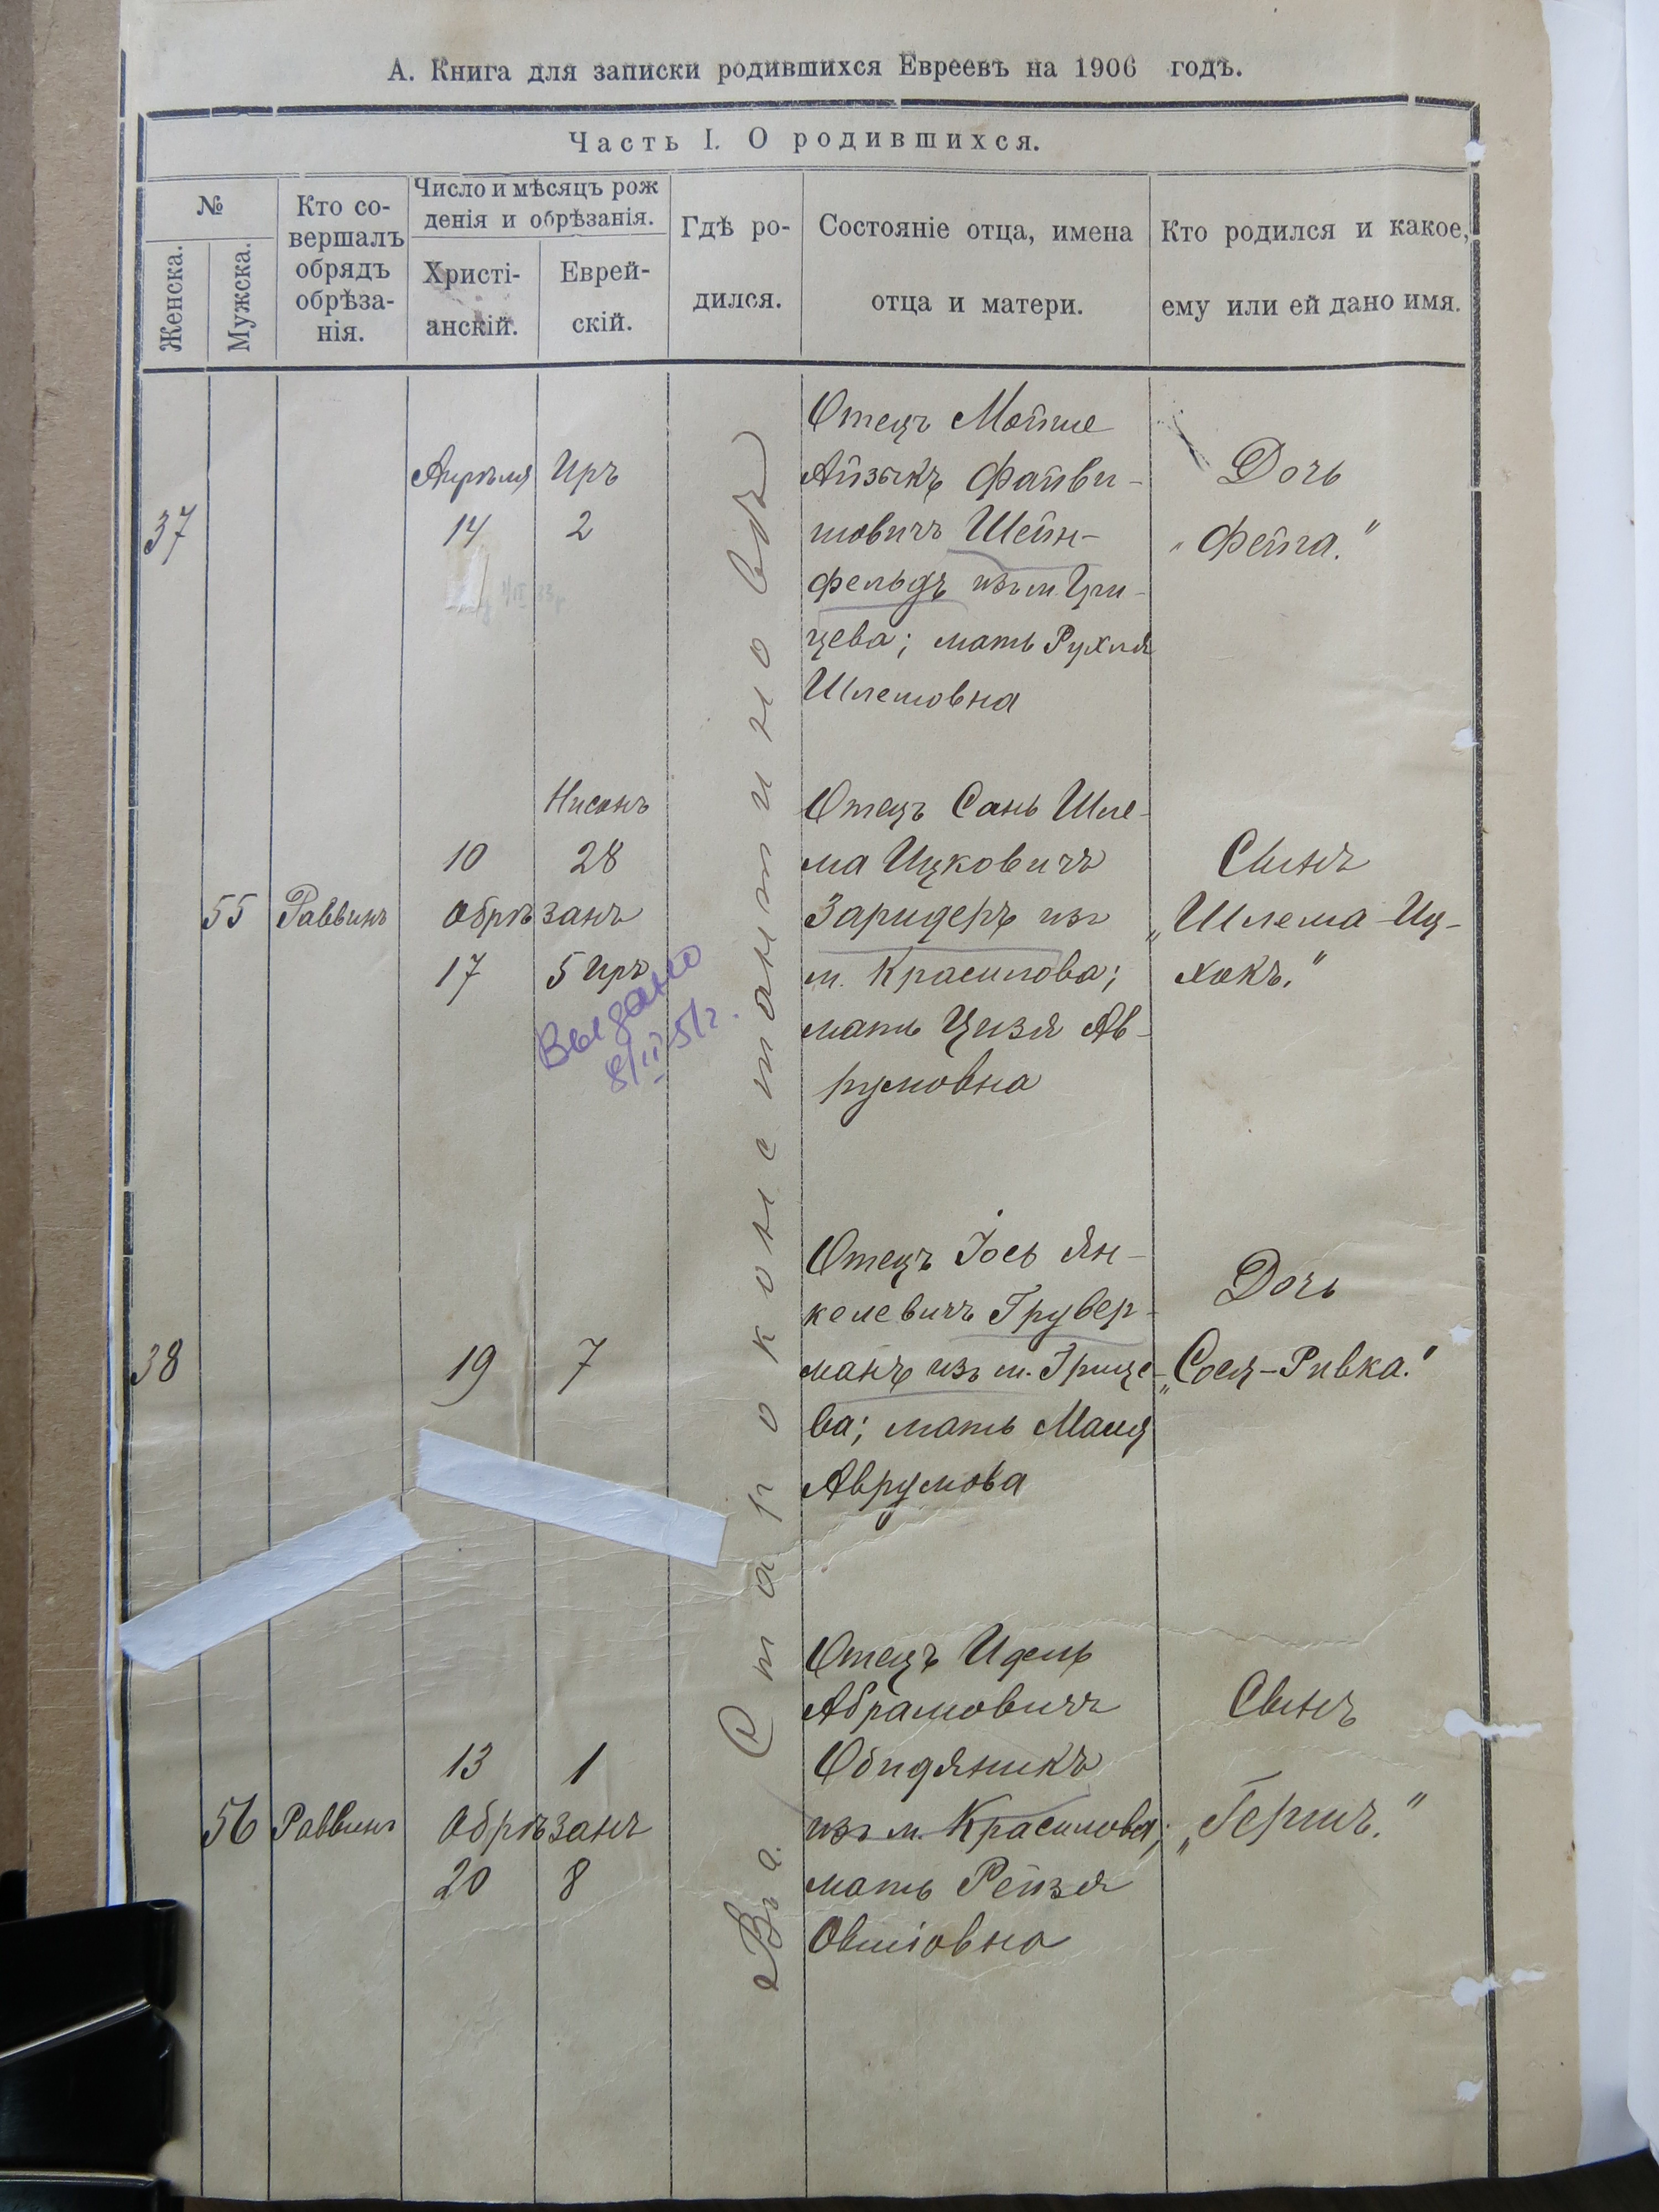 А. Книга для записки родившихся Евреевъ на 1906 годъ.
Часть I. О родившихся.
№
Женска.
Мужска.
Кто со-
вершалъ
обрядъ
обрѣза-
нія.
Число и мѣсяцъ рож
денія и обрѣзанія.
Христі-
анскій.
Еврей-
скій.
Гдѣ ро-
дился.
Состояніе отца, имена
отца и матери.
Кто родился и какое,
ему или ей дано имя.
Въ г. Староконстантиновѣ
37
Апрѣля
14
Иръ
2
Отецъ Мойше
Айзыкъ Файви-
шовичъ Шейн-
фельдъ изъ м. Гри-
цева; мать Рухля
Шлемовна
Дочь
„Фейга."
55
Раввинъ
Нисанъ
10 28
Обрѣзанъ
17 5 Иръ
Выдано
8/II 51г.
Отецъ Сань Шле-
ма Ицковичъ
Заридеръ изъ
м. Красилова;
мать Цизя Ав-
румовна
Сынъ
„Шлема-Иц-
хокъ."
38
19 7
Отецъ Іось Ян-
келевичъ Грубер-
манъ изъ м. Грице-
ва; мать Маля
Аврумова
Дочь
„Сося-Ривка."
56
Раввинъ
13 1
Обрѣзанъ
20 8
Отецъ Идель
Абрамовичъ
Обидяникъ
изъ м. Красилова;
мать Рейзя
Овшіовна
Сынъ
„Гершъ."